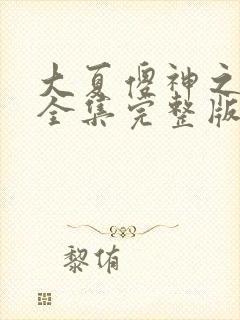 大夏傻神之
全集完整版
黎侑